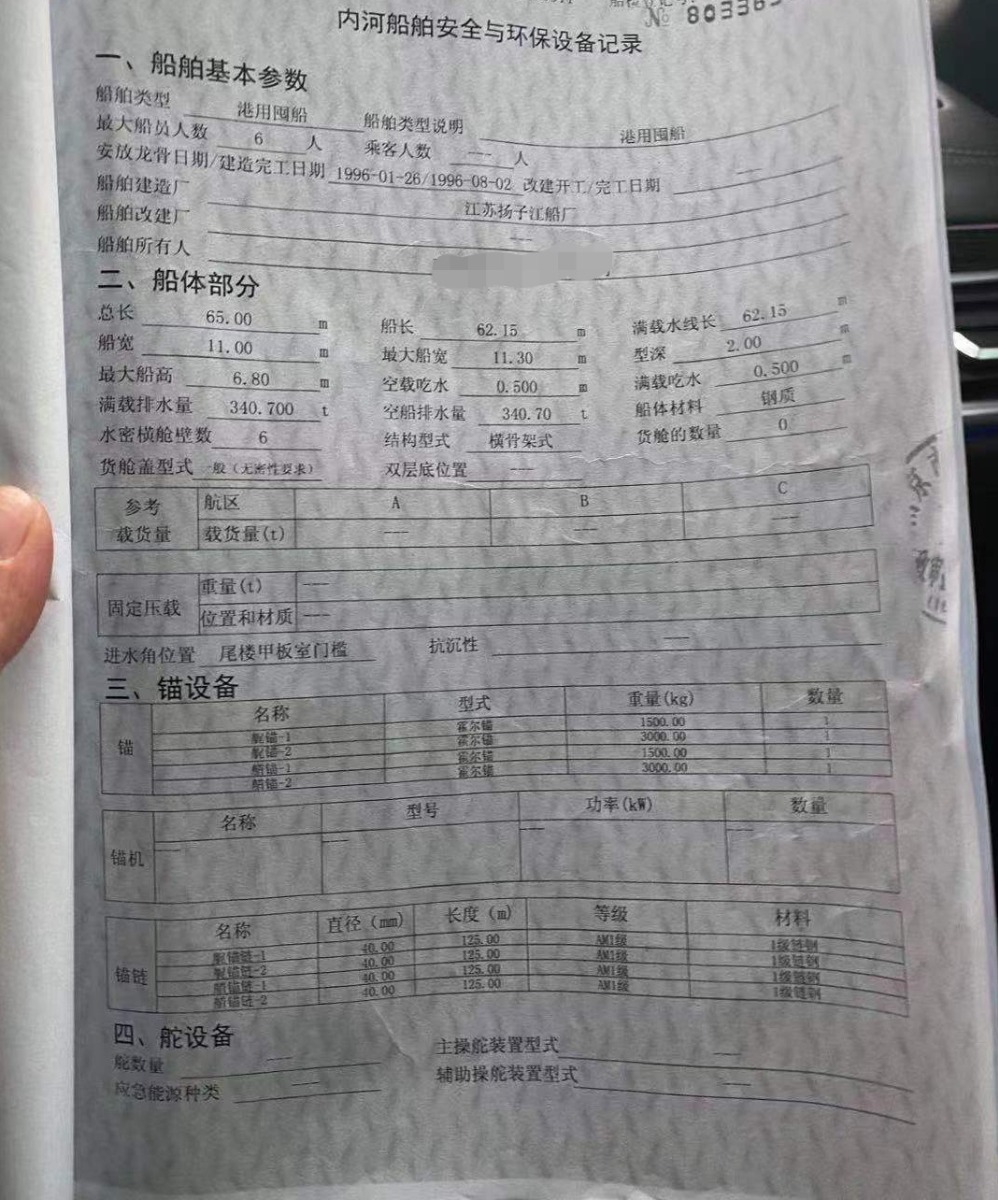 № 80336
内河船舶安全与环保设备记录
一、船舶基本参数
船舶类型 港用囤船 船舶类型说明 港用囤船
最大船员人数 6 人 乘客人数 --- 人
安放龙骨日期/建造完工日期 1996-01-26/1996-08-02 改建开工/完工日期 ---
船舶建造厂 江苏扬子江船厂
船舶改建厂 ---
船舶所有人
二、船体部分
总长 65.00 m 船长 62.15 m 满载水线长 62.15 m
船宽 11.00 m 最大船宽 11.30 m 型深 2.00 m
最大船高 6.80 m 空载吃水 0.500 m 满载吃水 0.500 m
满载排水量 340.700 t 空船排水量 340.70 t 船体材料 钢质
水密横舱壁数 6 结构型式 横骨架式 货舱的数量 0
货舱盖型式 一般（无密性要求） 双层底位置 ---
参考载货量 航区 A B C
载货量(t) --- --- ---
固定压载 重量(t) ---
位置和材质 ---
进水角位置 尾楼甲板室门槛 抗沉性 ---
三、锚设备
锚 名称 型式 重量(kg) 数量
艉锚-1 霍尔锚 1500.00 1
艉锚-2 霍尔锚 3000.00 1
艏锚-1 霍尔锚 1500.00 1
艏锚-2 霍尔锚 3000.00 1
锚机 名称 型号 功率(kW) 数量
--- --- --- ---
锚链 名称 直径(mm) 长度(m) 等级 材料
艉锚链-1 40.00 125.00 AM1级 1级链钢
艉锚链-2 40.00 125.00 AM1级 1级链钢
艏锚链-1 40.00 125.00 AM1级 1级链钢
艏锚链-2 40.00 125.00 AM1级 1级链钢
四、舵设备
舵数量 --- 主操舵装置型式 ---
应急能源种类 --- 辅助操舵装置型式 ---